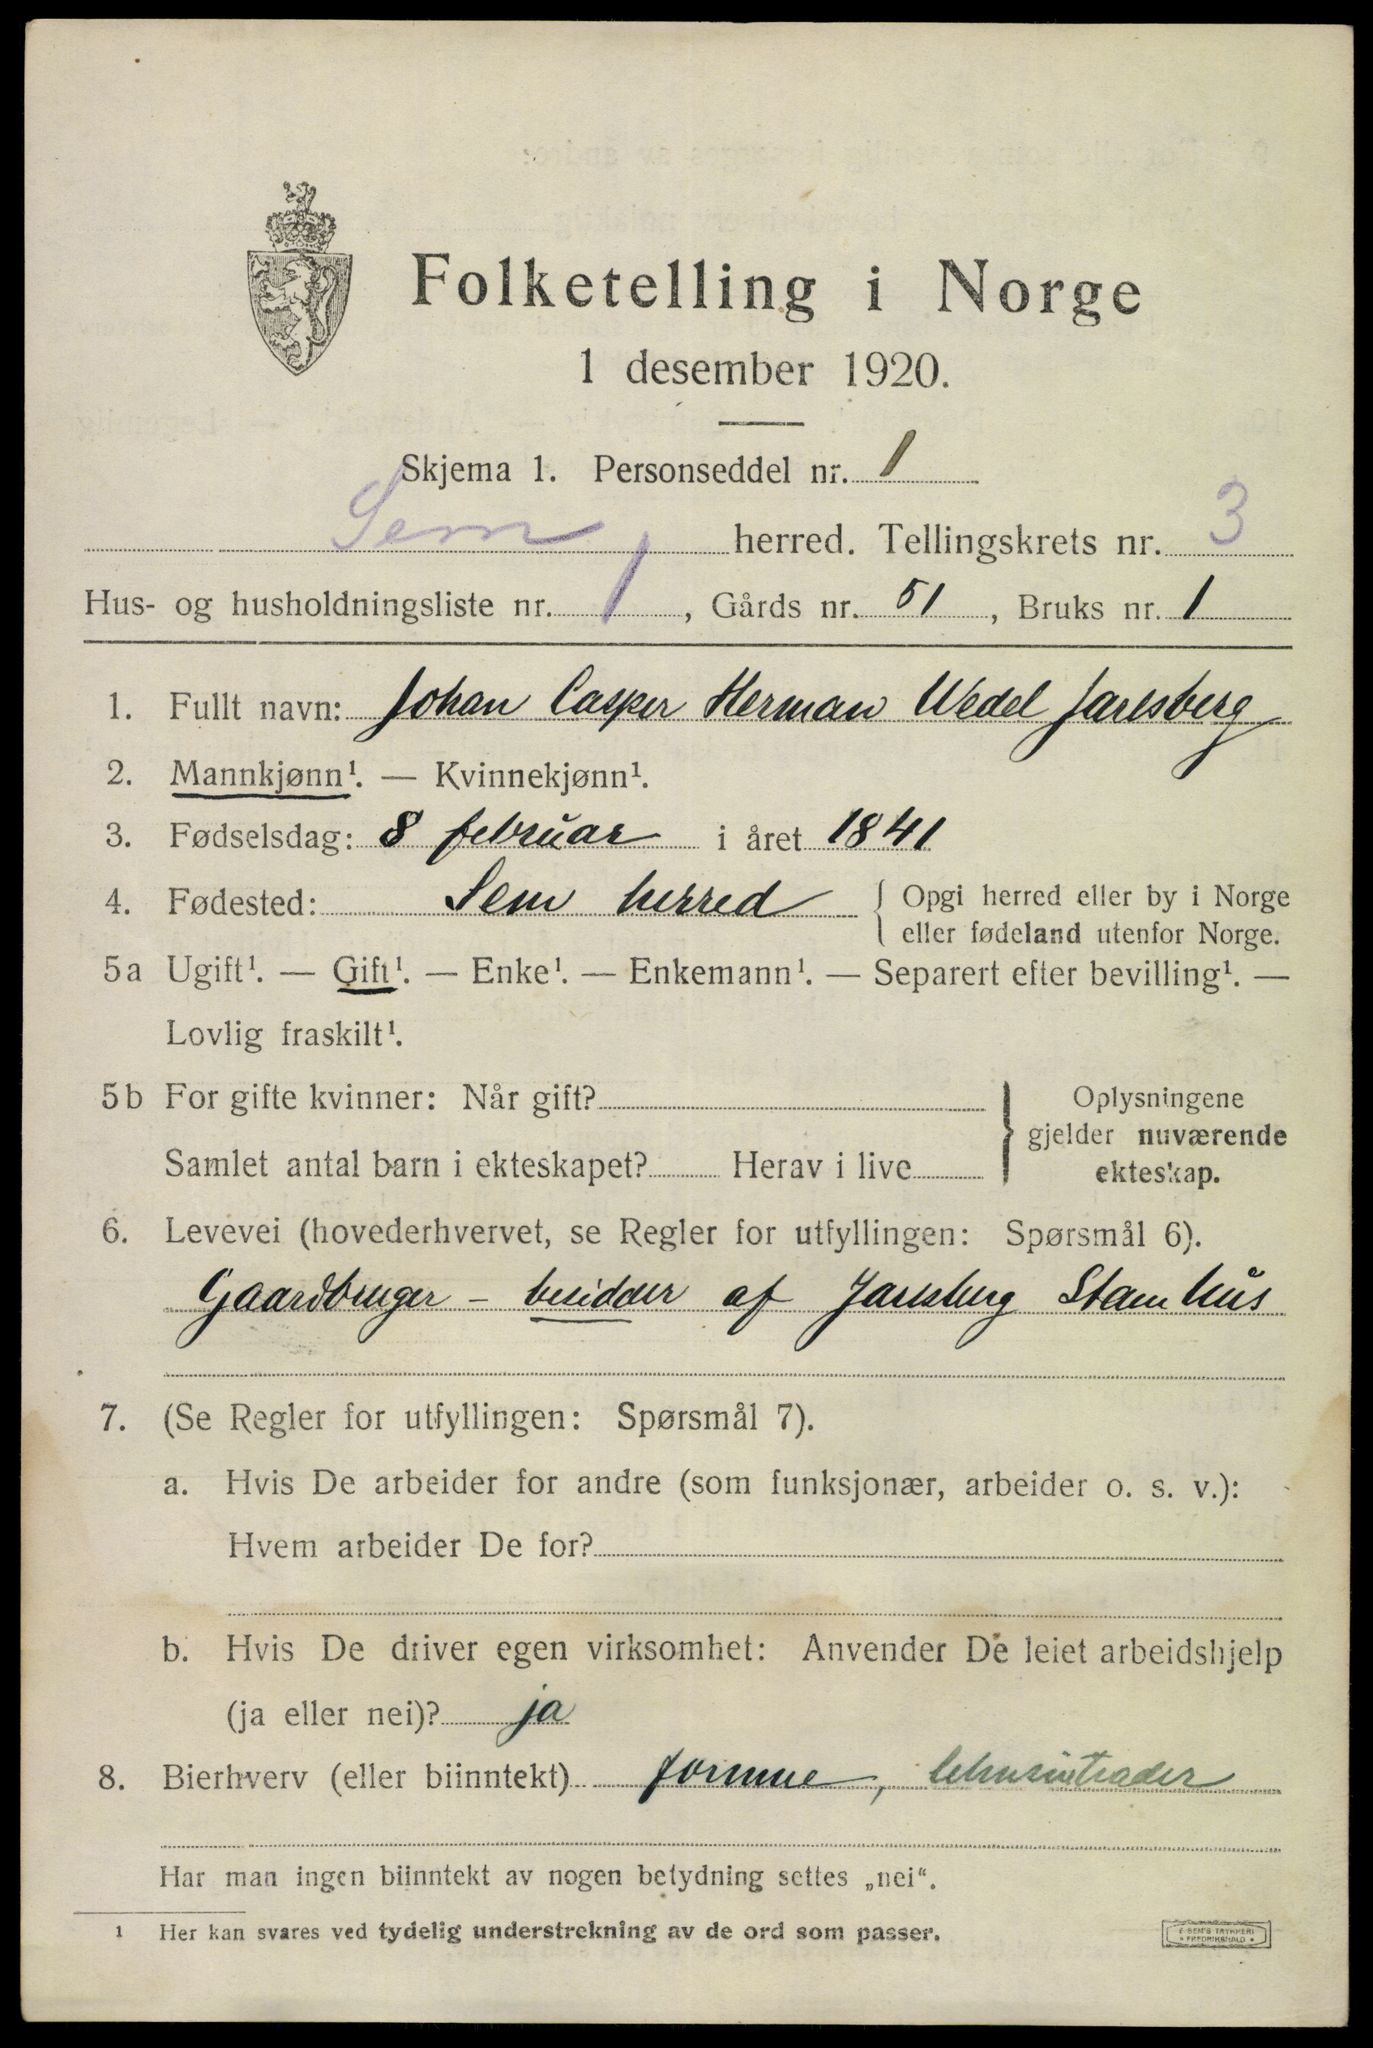 Folketelling i Norge
1 desember 1920.
Skjema 1. Personseddel nr. 1
Sem herred. Tellingskrets nr. 3
Hus- og husholdningsliste nr. 1, Gårds nr. 51, Bruks nr. 1
1. Fullt navn: Johan Casper Herman Wedel Jarlsberg
2. Mannkjønn¹. — Kvinnekjønn¹.
3. Fødselsdag: 8 februar i året 1841
4. Fødested: Sem herred { Opgi herred eller by i Norge
eller fødeland utenfor Norge.
5a Ugift¹. — Gift¹. — Enke¹. — Enkemann¹. — Separert efter bevilling¹. —
Lovlig fraskilt¹.
5b For gifte kvinner: Når gift? } Oplysningene
gjelder nuværende
Samlet antal barn i ekteskapet? Herav i live ekteskap.
6. Levevei (hovederhvervet, se Regler for utfyllingen: Spørsmål 6).
Gaardbruger – besidder af Jarlsberg Stamhus
7. (Se Regler for utfyllingen: Spørsmål 7).
a. Hvis De arbeider for andre (som funksjonær, arbeider o. s. v.):
Hvem arbeider De for?
b. Hvis De driver egen virksomhet: Anvender De leiet arbeidshjelp
(ja eller nei)? ja
8. Bierhverv (eller biinntekt) formue,
Har man ingen biinntekt av nogen betydning settes „nei“.
¹ Her kan svares ved tydelig understrekning av de ord som passer.
SEM'S TRYKKERI
FREDRIKSHALD